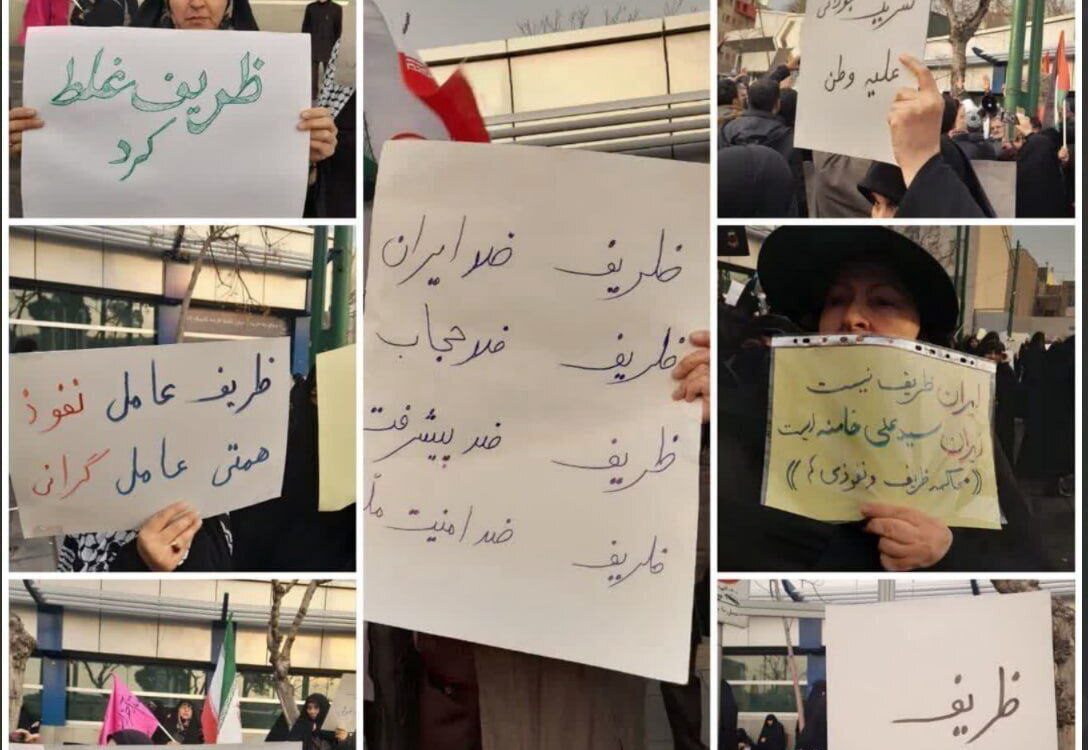 ظریف غلط
کرد
ظریف ضد ایران
ظریف ضد حجاب
ظریف ضد پیشرفت
ظریف ضد امنیت
علیه وطن
ظریف عامل نفوذ
همتی عامل گرانی
ایران ظریف نیست
ایران سید علی خامنه ایست
((محاکمه ظریف و نفوذی ها))
ظریف